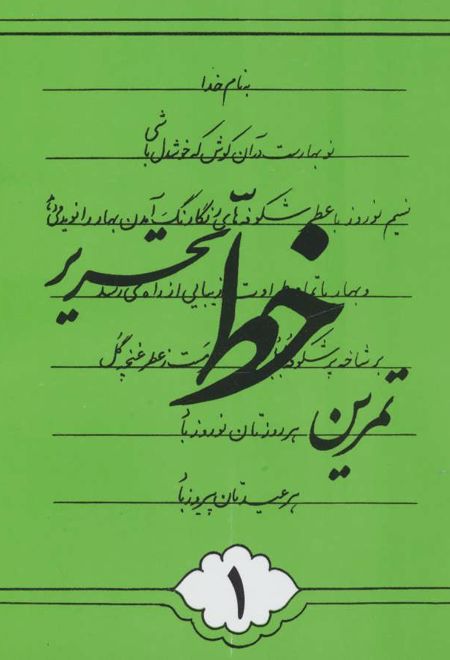 به نام خدا
نو بهارست در آن کوش که خوشدل باشی
نسیم نوروز با عطر شکوفه‌های رنگارنگ آمدن بهار را نوید می‌دهد
و بهار با تمام طراوت زیبایی از راه می‌رسد
بر شاخه پر شکوفه مست ز عطر غنچه گل
هر روزتان نوروز باد
هر عیدتان پیروز باد
تمرین خط تحریر
۱